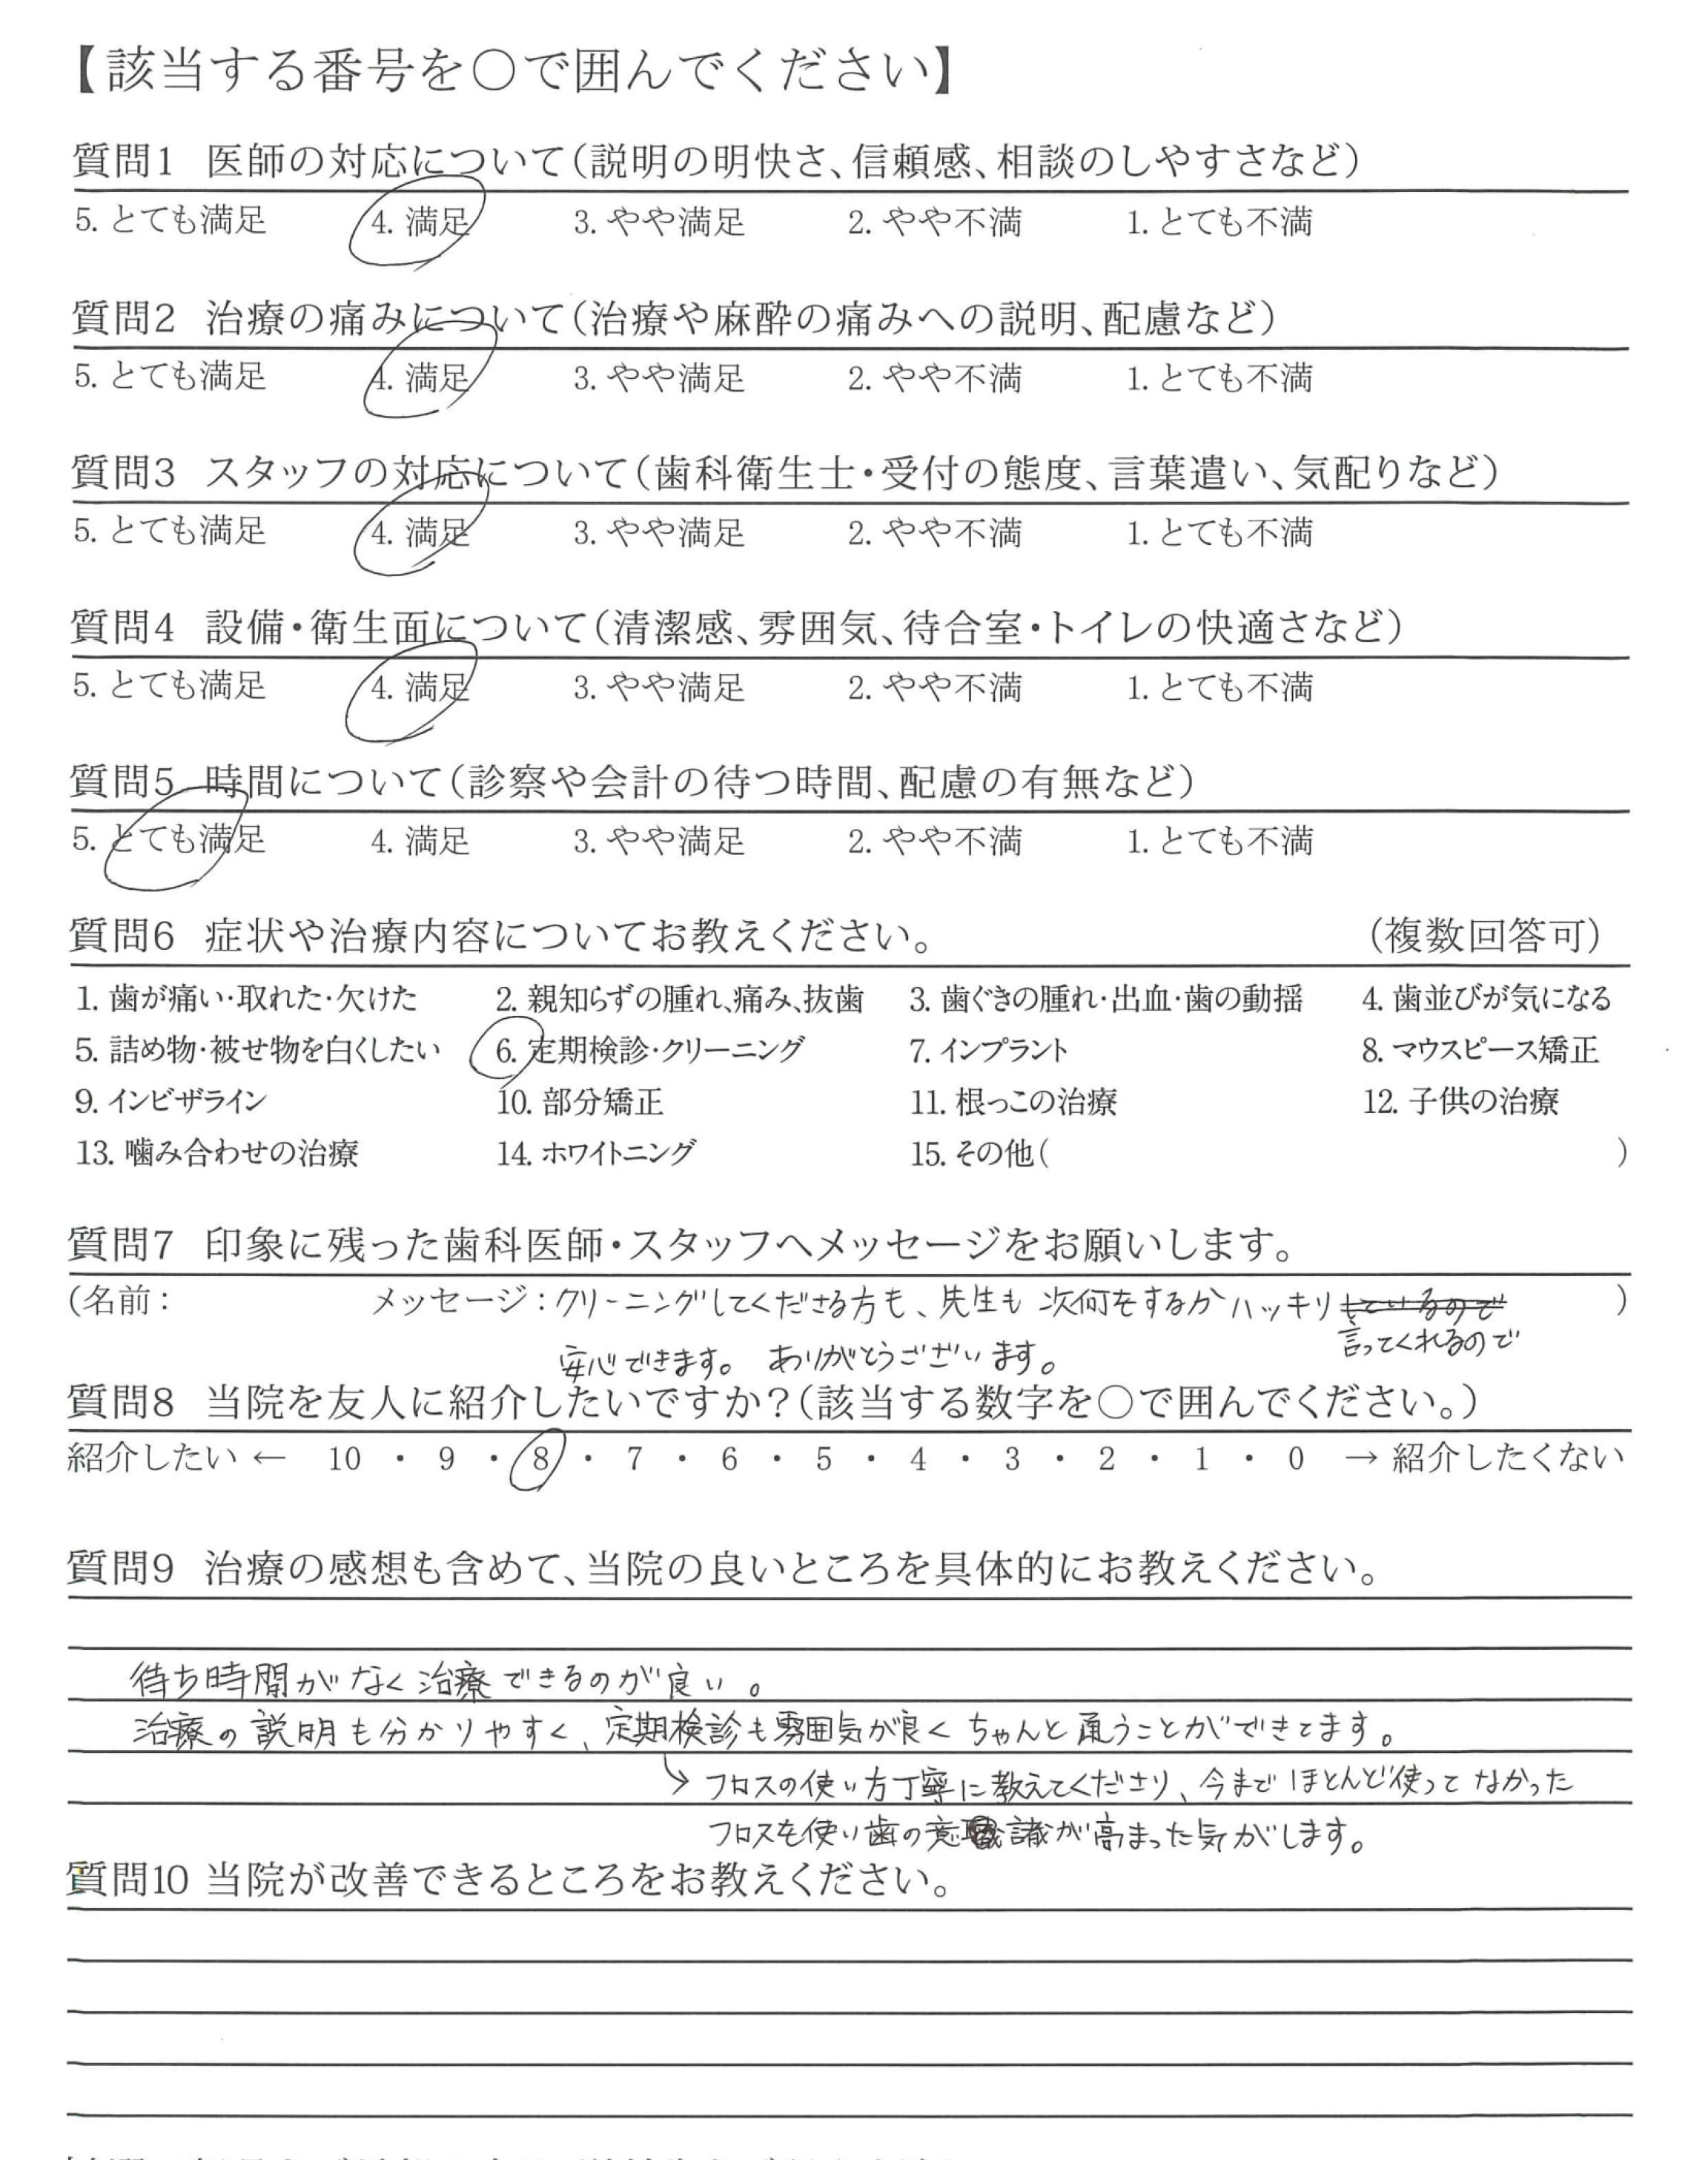 【該当する番号を○で囲んでください】
質問1 医師の対応について（説明の明快さ、信頼感、相談のしやすさなど）
5. とても満足 4. 満足 3. やや満足 2. やや不満 1. とても不満
質問2 治療の痛みについて（治療や麻酔の痛みへの説明、配慮など）
5. とても満足 4. 満足 3. やや満足 2. やや不満 1. とても不満
質問3 スタッフの対応について（歯科衛生士・受付の態度、言葉遣い、気配りなど）
5. とても満足 4. 満足 3. やや満足 2. やや不満 1. とても不満
質問4 設備・衛生面について（清潔感、雰囲気、待合室・トイレの快適さなど）
5. とても満足 4. 満足 3. やや満足 2. やや不満 1. とても不満
質問5 時間について（診察や会計の待つ時間、配慮の有無など）
5. とても満足 4. 満足 3. やや満足 2. やや不満 1. とても不満
質問6 症状や治療内容についてお教えください。 （複数回答可）
1. 歯が痛い・取れた・欠けた 2. 親知らずの腫れ、痛み、抜歯 3. 歯ぐきの腫れ・出血・歯の動揺 4. 歯並びが気になる
5. 詰め物・被せ物を白くしたい 6. 定期検診・クリーニング 7. インプラント 8. マウスピース矯正
9. インビザライン 10. 部分矯正 11. 根っこの治療 12. 子供の治療
13. 噛み合わせの治療 14. ホワイトニング 15. その他（ ）
質問7 印象に残った歯科医師・スタッフへメッセージをお願いします。
（名前： メッセージ：クリーニングしてくださる方も、先生も 次何をするか ハッキリしているので ）
言ってくれるので
安心できます。 ありがとうございます。
質問8 当院を友人に紹介したいですか？（該当する数字を○で囲んでください。）
紹介したい ← 10 ・ 9 ・ 8 ・ 7 ・ 6 ・ 5 ・ 4 ・ 3 ・ 2 ・ 1 ・ 0 → 紹介したくない
質問9 治療の感想も含めて、当院の良いところを具体的にお教えください。
待ち時間がなく治療できるのが良い。
治療の説明も分かりやすく、定期検診も雰囲気が良くちゃんと通うことができてます。
→ フロスの使い方丁寧に教えてくださり、今までほとんど使ってなかった
フロスを使い歯の意識が高まった気がします。
質問10 当院が改善できるところをお教えください。